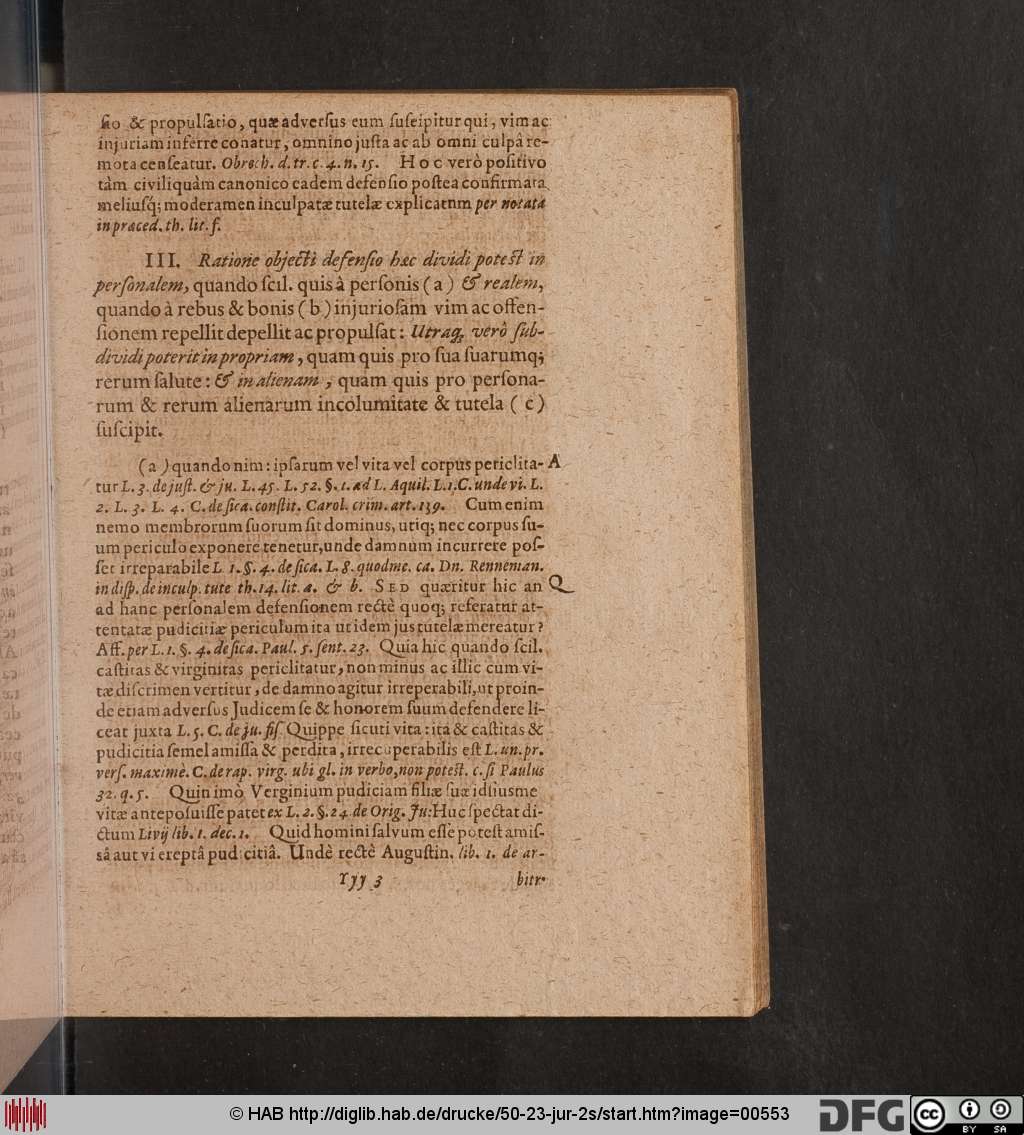 sio & propulsatio, quæ adversus eum suscipitur qui, vim ac
injuriam inferre conatur, omnino justa ac ab omni culpâ re-
mota censeatur. Obrech. d. tr. c. 4. n. 15. Hoc verò positivo
tàm civili quàm canonico eadem defensio postea confirmata
meliusq́; moderamen inculpatæ tutelæ explicatnm per notata
in præced. th. lit. f.
III. Ratione objecti defensio hæc dividi potest in
personalem, quando scil. quis à personis (a) & realem,
quando à rebus & bonis (b) injuriosam vim ac offen-
sionem repellit depellit ac propulsat: Utraq; verò sub-
dividi poterit in propriam, quam quis pro sua suarumq;
rerum salute: & in alienam, quam quis pro persona-
rum & rerum alienarum incolumitate & tutela (c)
suscipit.
(a) quando nim: ipsarum vel vita vel corpus periclita- A
tur L. 3. de just. & ju. L. 45. L. 52. §. 1. ad L. Aquil. L. 1. C. unde vi. L.
2. L. 3. L. 4. C. de sica. constit. Carol. crim. art. 139. Cum enim
nemo membrorum suorum sit dominus, utiq; nec corpus su-
um periculo exponere tenetur, unde damnum incurrere pos-
set irreparabile L 1. §. 4. de sica. L. 8. quod me. ca. Dn. Renneman.
in disp. de inculp. tute th. 14. lit. a. & b. SED quæritur hic an Q
ad hanc personalem defensionem rectè quoq; referatur at-
tentatæ pudicitiæ periculum ita ut idem jus tutelæ mereatur?
Aff. per L. 1. §. 4. de sica. Paul. 5. sent. 23. Quia hic quando scil.
castitas & virginitas periclitatur, non minus ac illic cum vi-
tæ discrimen vertitur, de damno agitur irreperabili, ut proin-
de etiam adversus Judicem se & honorem suum defendere li-
ceat juxta L. 5. C. de ju. fis. Quippe sicuti vita: ita & castitas &
pudicitia semel amissa & perdita, irrecuperabilis est L. un. pr.
vers. maximè. C. de rap. virg. ubi gl. in verbo, non potest. c. si Paulus
32. q. 5. Quin imò Verginium pudiciam filiæ suæ idsiusme
vitæ anteposuisse patet ex L. 2. §. 24 de Orig. Ju: Huc spectat di-
ctum Livij lib. 1. dec. 1. Quid homini salvum esse potest amis-
sâ aut vi ereptâ pudicitiâ. Undè rectè Augustin. lib. 1. de ar-
Yyy 3 bitr.
© HAB http://diglib.hab.de/drucke/50-23-jur-2s/start.htm?image=00553
DFG
cc BY SA